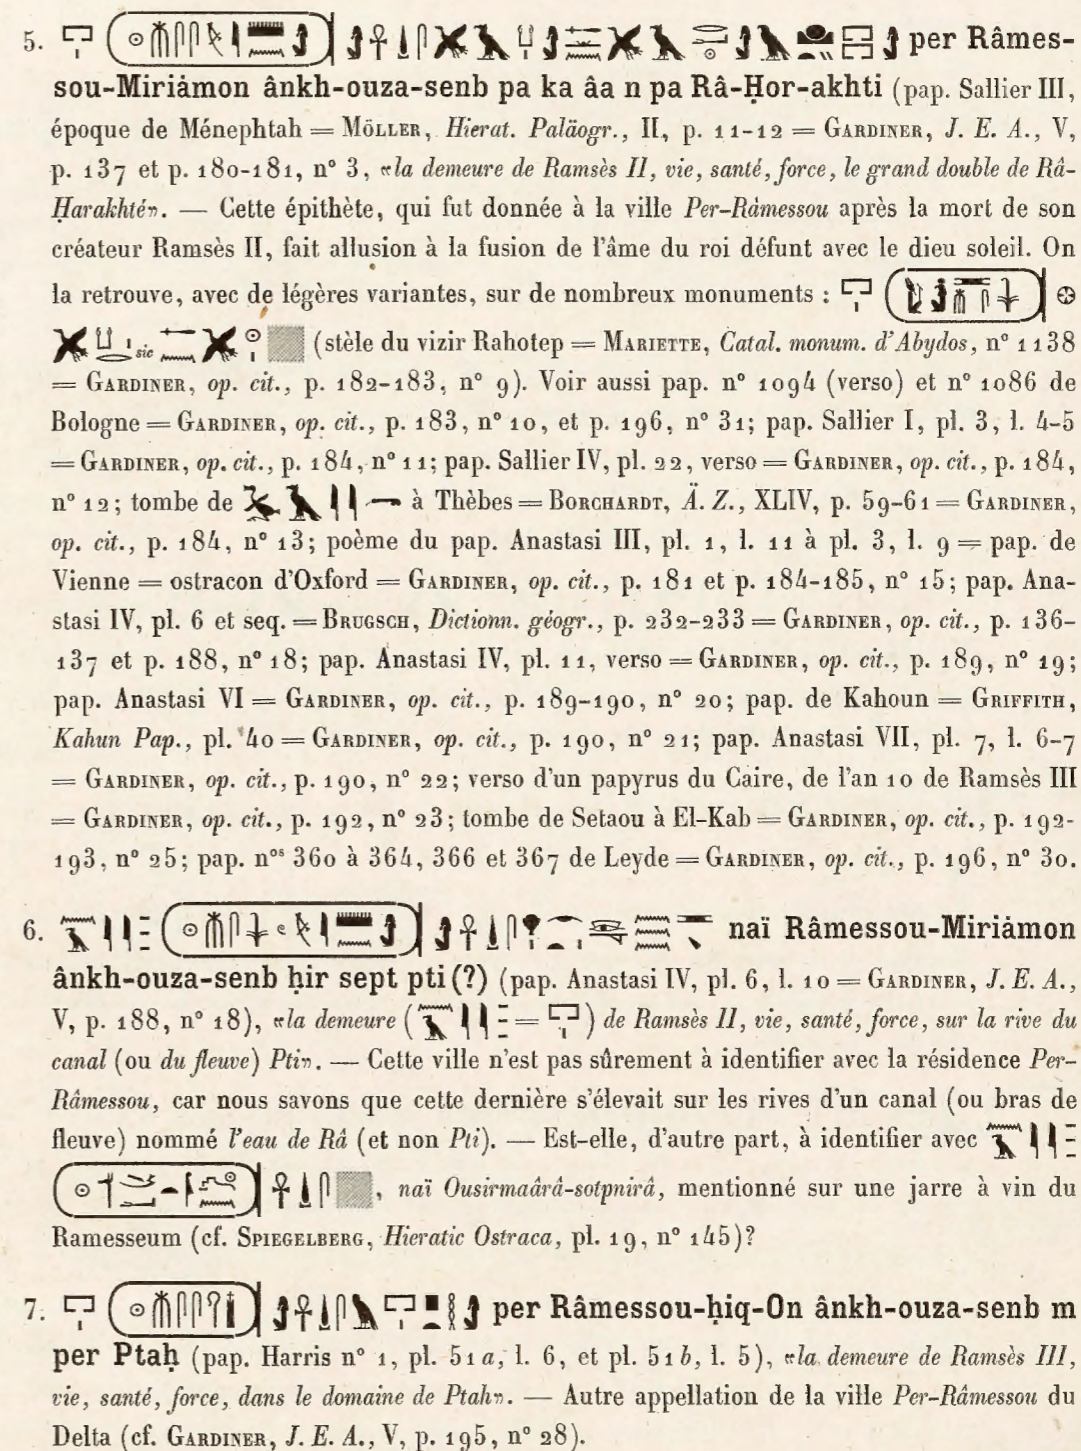 5. per Râmes-
sou-Miriámon ânkh-ouza-senb pa ka âa n pa Râ-Ḥor-akhti (pap. Sallier III,
époque de Ménephtah = Möller, Hierat. Paläogr., II, p. 11-12 = Gardiner, J. E. A., V,
p. 137 et p. 180-181, n° 3, «la demeure de Ramsès II, vie, santé, force, le grand double de Râ-
Ḥarakhté». — Cette épithète, qui fut donnée à la ville Per-Râmessou après la mort de son
créateur Ramsès II, fait allusion à la fusion de l'âme du roi défunt avec le dieu soleil. On
la retrouve, avec de légères variantes, sur de nombreux monuments :
sic (stèle du vizir Rahotep = Mariette, Catal. monum. d'Abydos, n° 1138
= Gardiner, op. cit., p. 182-183, n° 9). Voir aussi pap. n° 1094 (verso) et n° 1086 de
Bologne = Gardiner, op. cit., p. 183, n° 10, et p. 196, n° 31; pap. Sallier I, pl. 3, l. 4-5
= Gardiner, op. cit., p. 184, n° 11; pap. Sallier IV, pl. 22, verso = Gardiner, op. cit., p. 184,
n° 12; tombe de à Thèbes = Borchardt, Ä. Z., XLIV, p. 59-61 = Gardiner,
op. cit., p. 184, n° 13; poème du pap. Anastasi III, pl. 1, l. 11 à pl. 3, l. 9 = pap. de
Vienne = ostracon d'Oxford = Gardiner, op. cit., p. 181 et p. 184-185, n° 15; pap. Ana-
stasi IV, pl. 6 et seq. = Brugsch, Dictionn. géogr., p. 232-233 = Gardiner, op. cit., p. 136-
137 et p. 188, n° 18; pap. Anastasi IV, pl. 11, verso = Gardiner, op. cit., p. 189, n° 19;
pap. Anastasi VI = Gardiner, op. cit., p. 189-190, n° 20; pap. de Kahoun = Griffith,
Kahun Pap., pl. 40 = Gardiner, op. cit., p. 190, n° 21; pap. Anastasi VII, pl. 7, l. 6-7
= Gardiner, op. cit., p. 190, n° 22; verso d'un papyrus du Caire, de l'an 10 de Ramsès III
= Gardiner, op. cit., p. 192, n° 23; tombe de Setaou à El-Kab = Gardiner, op. cit., p. 192-
193, n° 25; pap. nos 360 à 364, 366 et 367 de Leyde = Gardiner, op. cit., p. 196, n° 30.
6. naï Râmessou-Miriámon
ânkh-ouza-senb ḥir sept pti (?) (pap. Anastasi IV, pl. 6, l. 10 = Gardiner, J. E. A.,
V, p. 188, n° 18), «la demeure ( = ) de Ramsès II, vie, santé, force, sur la rive du
canal (ou du fleuve) Pti». — Cette ville n'est pas sûrement à identifier avec la résidence Per-
Râmessou, car nous savons que cette dernière s'élevait sur les rives d'un canal (ou bras de
fleuve) nommé l'eau de Râ (et non Pti). — Est-elle, d'autre part, à identifier avec
, naï Ousirmaârâ-sotpnirâ, mentionné sur une jarre à vin du
Ramesseum (cf. Spiegelberg, Hieratic Ostraca, pl. 19, n° 145)?
7. per Râmessou-ḥiq-On ânkh-ouza-senb m
per Ptaḥ (pap. Harris n° 1, pl. 51 a, l. 6, et pl. 51 b, l. 5), «la demeure de Ramsès III,
vie, santé, force, dans le domaine de Ptah». — Autre appellation de la ville Per-Râmessou du
Delta (cf. Gardiner, J. E. A., V, p. 195, n° 28).